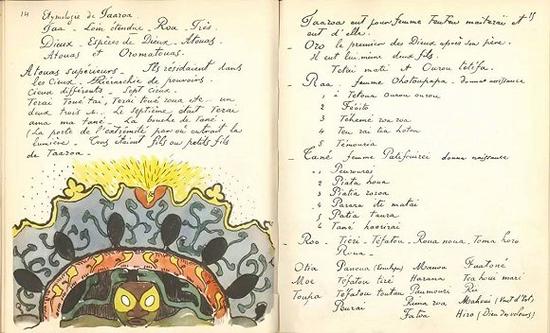 14
Etymologie de Taaroa
Taa - Loin étendue - Roa - Très.
Dieux - Espèces de Dieux - Atouas.
Atouas et Oromatouas.
Atouas supérieurs - Ils résidaient dans
les Cieux. Hiérarchie de pouvoirs.
Cieux différents - Sept cieux.
Terai Toué tai, Terai toué roua etc - un
deux trois etc. Le septième était Terai
ama ma tané - La bouche de tané.
(La porte de l'extrémité par où entrait la
lumière - Tous étaient fils ou petits fils
de Taaroa.
15
Taaroa eut pour femme et
eut d'elle.
Oro le premier des Dieux après son père.
Il eut lui même deux fils.
Tetai mati et Ourou tetefa.
Raa - femme Otoupapa - donna naissance
1 a Tetoua ourou ourou
2 Feoito
3 Teheme roa roa
4 Teu rai tia hotou
5 Temouria
Tané femme donna naissance
1 Peurourai
2 Piata houa
3 Piatia roroa
4 Parara iti matai
5 Patia taura
6 Tané haeriraï
Roo - Tieri - Tefatou - Roua noua - Toma hora
Roua -
Otia
Moe Tefatou tiré Harana
Toupa Tefatou toutau Ré
Peurai Mahoui
Fatoa Hiro (Dieu des voleurs)